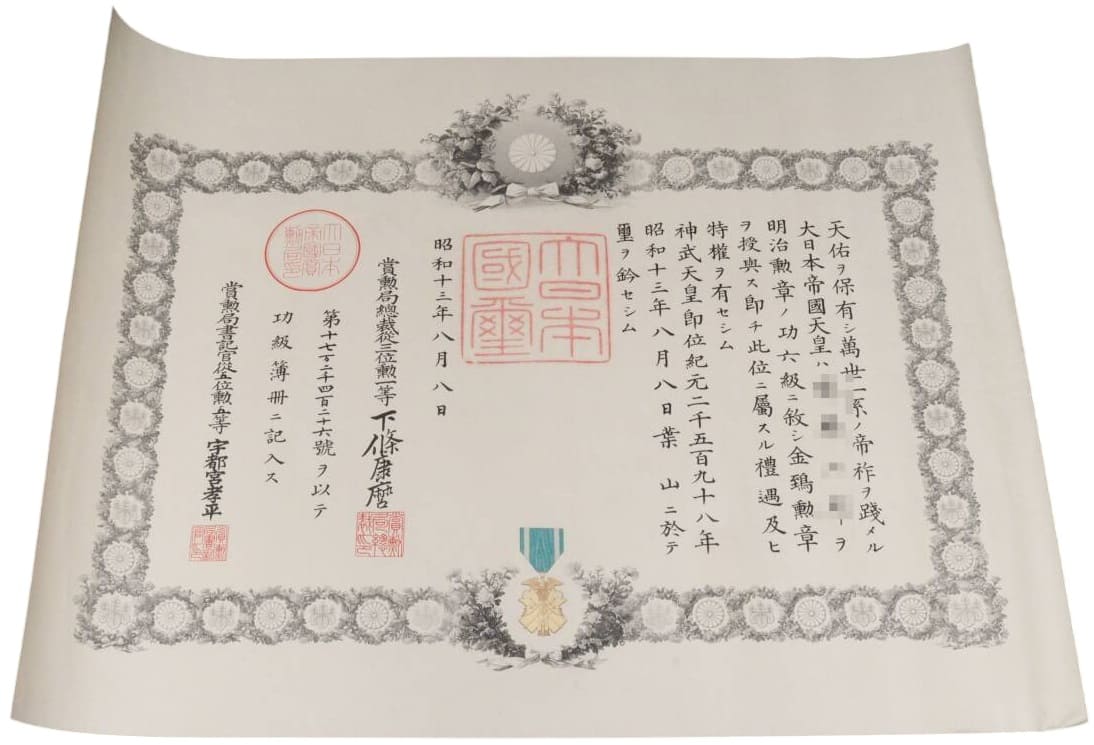 天佑ヲ保有シ萬世一系ノ帝祚ヲ踐メル
大日本帝國天皇ハ ヲ
明治勲章ノ功六級ニ敘シ金鵄勲章
ヲ授與ス即チ此位ニ屬スル禮遇及ヒ
特權ヲ有セシム
神武天皇即位紀元二千五百九十八年
昭和十三年八月八日葉山ニ於テ
璽ヲ鈐セシム
大日本
國璽
昭和十三年八月八日
賞勲局總裁從三位勲一等下條康麿
賞勲局總裁印
第十七万二千四百二十六號ヲ以テ
功級簿冊ニ記入ス
大日本帝國賞勲局印
賞勲局書記官從五位勲五等宇都宮孝平